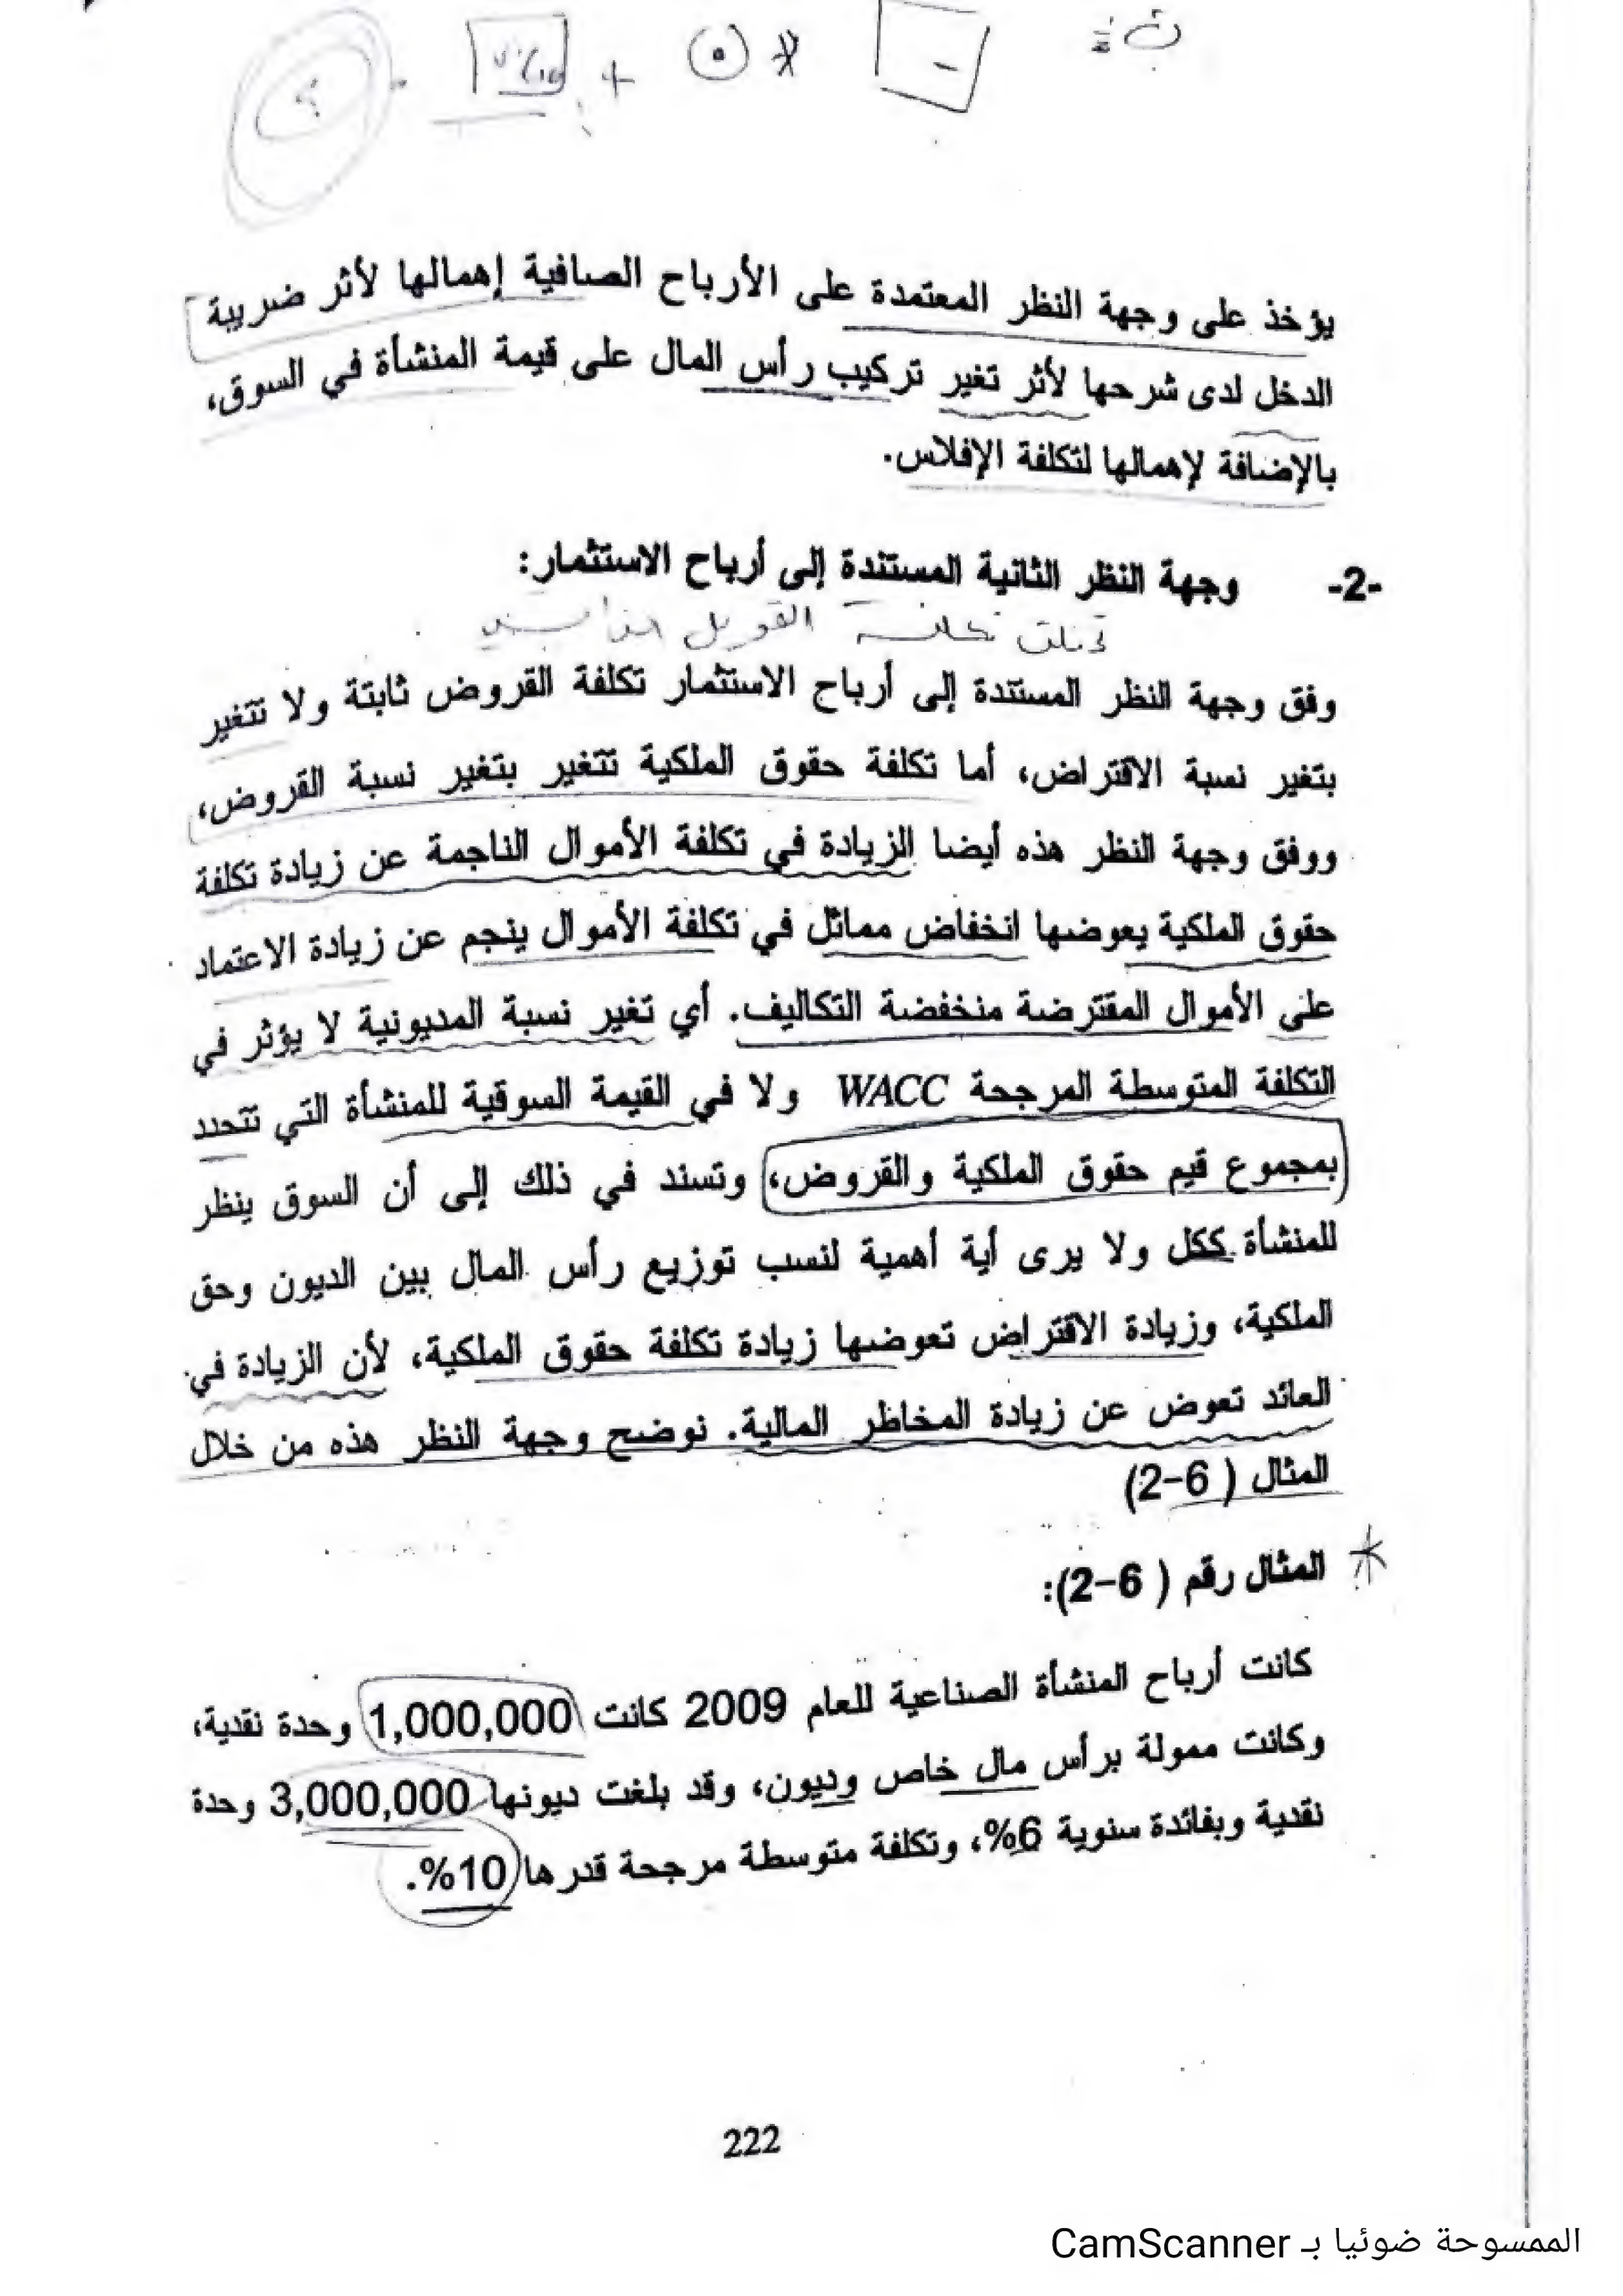 يؤخذ على وجهة النظر المعتمدة على الأرباح الصافية إهمالها لأثر ضريبة
الدخل لدى شرحها لأثر تغير تركيب رأس المال على قيمة المنشأة في السوق،
بالإضافة لإهمالها لتكلفة الإفلاس.
-2- وجهة النظر الثانية المستندة إلى أرباح الاستثمار:
وفق وجهة النظر المستندة إلى أرباح الاستثمار تكلفة القروض ثابتة ولا تتغير
بتغير نسبة الاقتراض، أما تكلفة حقوق الملكية تتغير بتغير نسبة القروض،
ووفق وجهة النظر هذه أيضا الزيادة في تكلفة الأموال الناجمة عن زيادة تكلفة
حقوق الملكية يعوضها انخفاض مماثل في تكلفة الأموال ينجم عن زيادة الاعتماد
على الأموال المقترضة منخفضة التكاليف. أي تغير نسبة المديونية لا يؤثر في
التكلفة المتوسطة المرجحة WACC ولا في القيمة السوقية للمنشأة التي تتحدد
بمجموع قيم حقوق الملكية والقروض، وتسند في ذلك إلى أن السوق ينظر
للمنشأة ككل ولا يرى أية أهمية لنسب توزيع رأس المال بين الديون وحق
الملكية، وزيادة الاقتراض تعوضها زيادة تكلفة حقوق الملكية، لأن الزيادة في
العائد تعوض عن زيادة المخاطر المالية. نوضح وجهة النظر هذه من خلال
المثال ( 6-2)
المثال رقم ( 6-2):
كانت أرباح المنشأة الصناعية للعام 2009 كانت 1,000,000 وحدة نقدية،
وكانت ممولة برأس مال خاص وديون، وقد بلغت ديونها 3,000,000 وحدة
نقدية وبفائدة سنوية 6%، وتكلفة متوسطة مرجحة قدرها 10%.
222
الممسوحة ضوئيا بـ CamScanner